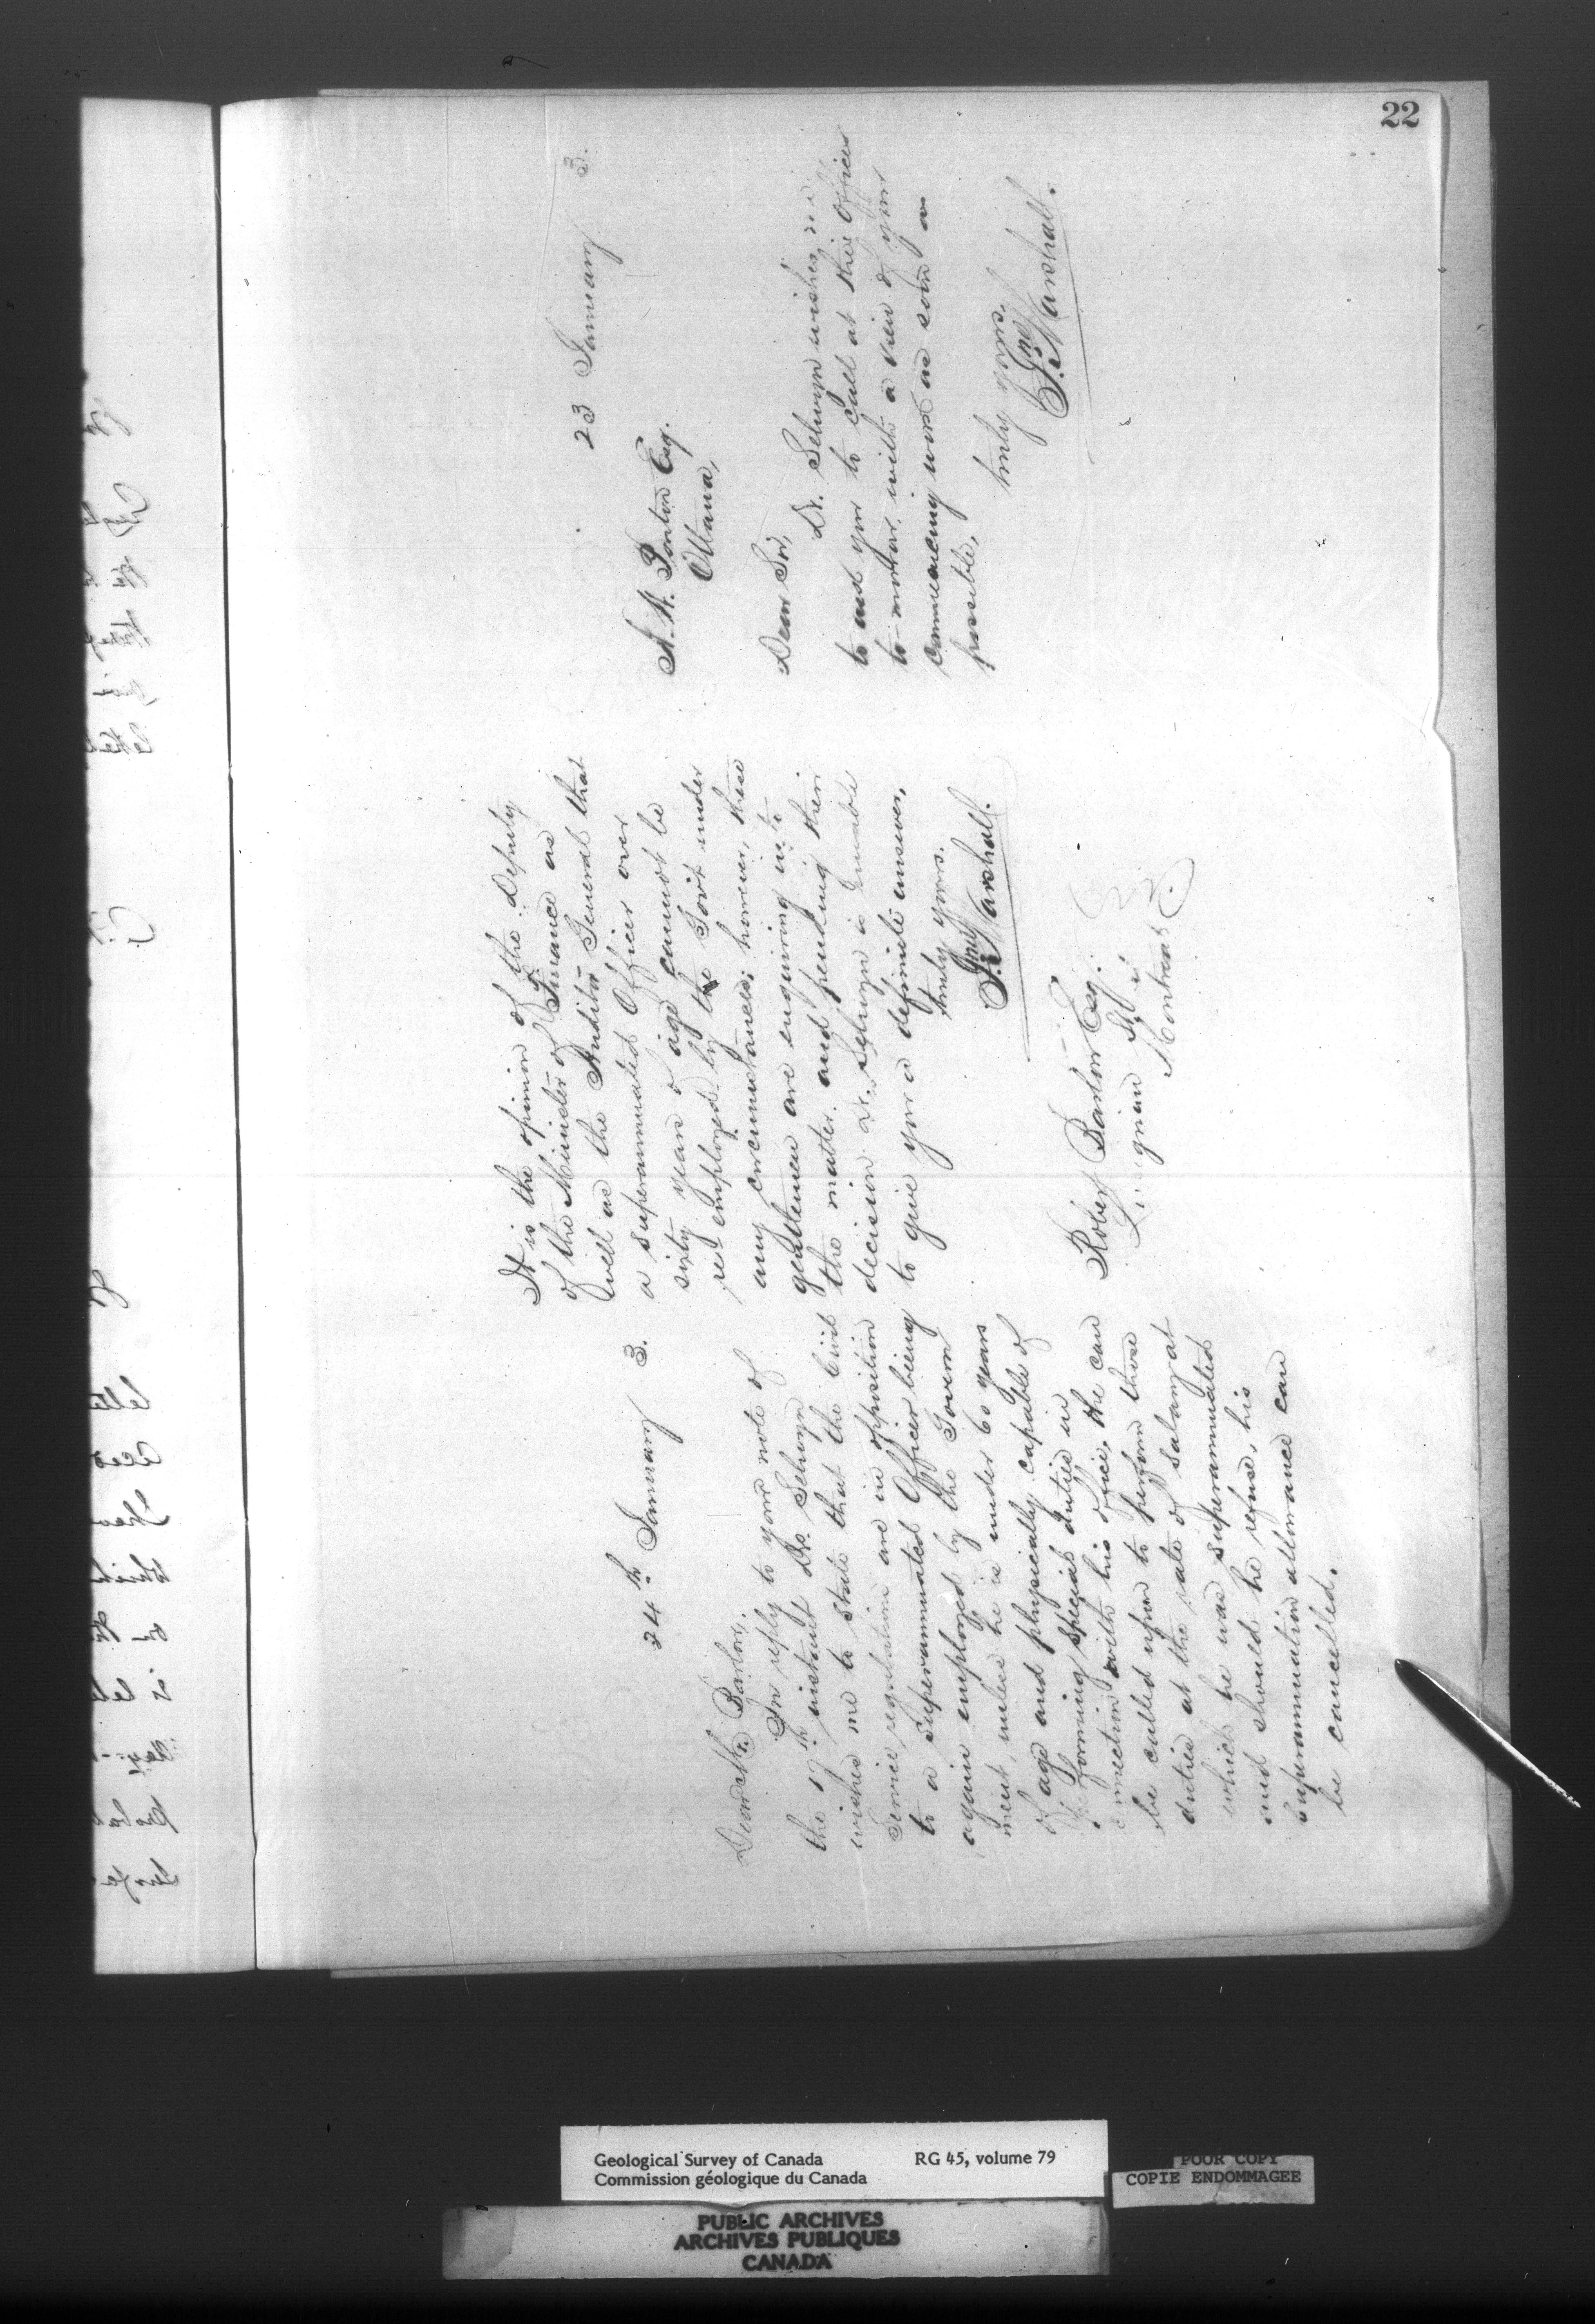 22
24th January 3.
Dear Mr. Barlow,
In reply to your note of
the 17th instant Dr. Selwyn
wishes me to state that the Civil
Service regulations are in opposition
to a Superannuated Officer being
again employed by the Govern
ment, unless he is under 60 years
of age and physically capable of
performing special duties in
connection with his office, he can
be called upon to perform those
duties at the rate of salary at
which he was superannuated
and should he refuse, his
superannuation allowance can
be cancelled.
It is the opinion of the Deputy
of the Minister of Finance as
well as the Auditor General that
a superannuated Officer over
sixty years of age cannot be
re employed by the Gov't under
any circumstances; however, these
gentlemen are enquiring into
the matter, and pending their
decision Dr. Selwyn is unable
to give you a definite answer,
truly yours.
Jno Marshall.
Robert Barlow Esq.
St
Montreal
23 January 3.
A. N. Ponton Esq.
Ottawa,
Dear Sir,
Dr. Selwyn wishes me
to ask you to call at this Office
to-morrow, with a view of your
commencing work as soon as
possible,
truly yours.
Jno Marshall.
Geological Survey of Canada RG 45, volume 79
Commission géologique du Canada
POOR COPY
COPIE ENDOMMAGEE
PUBLIC ARCHIVES
ARCHIVES PUBLIQUES
CANADA